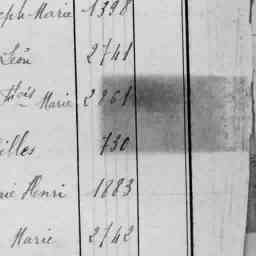 eph-Marie 1398
Léon 2741
fçois Marie 2861
illes 730
rie Henri 1883
Marie 2742